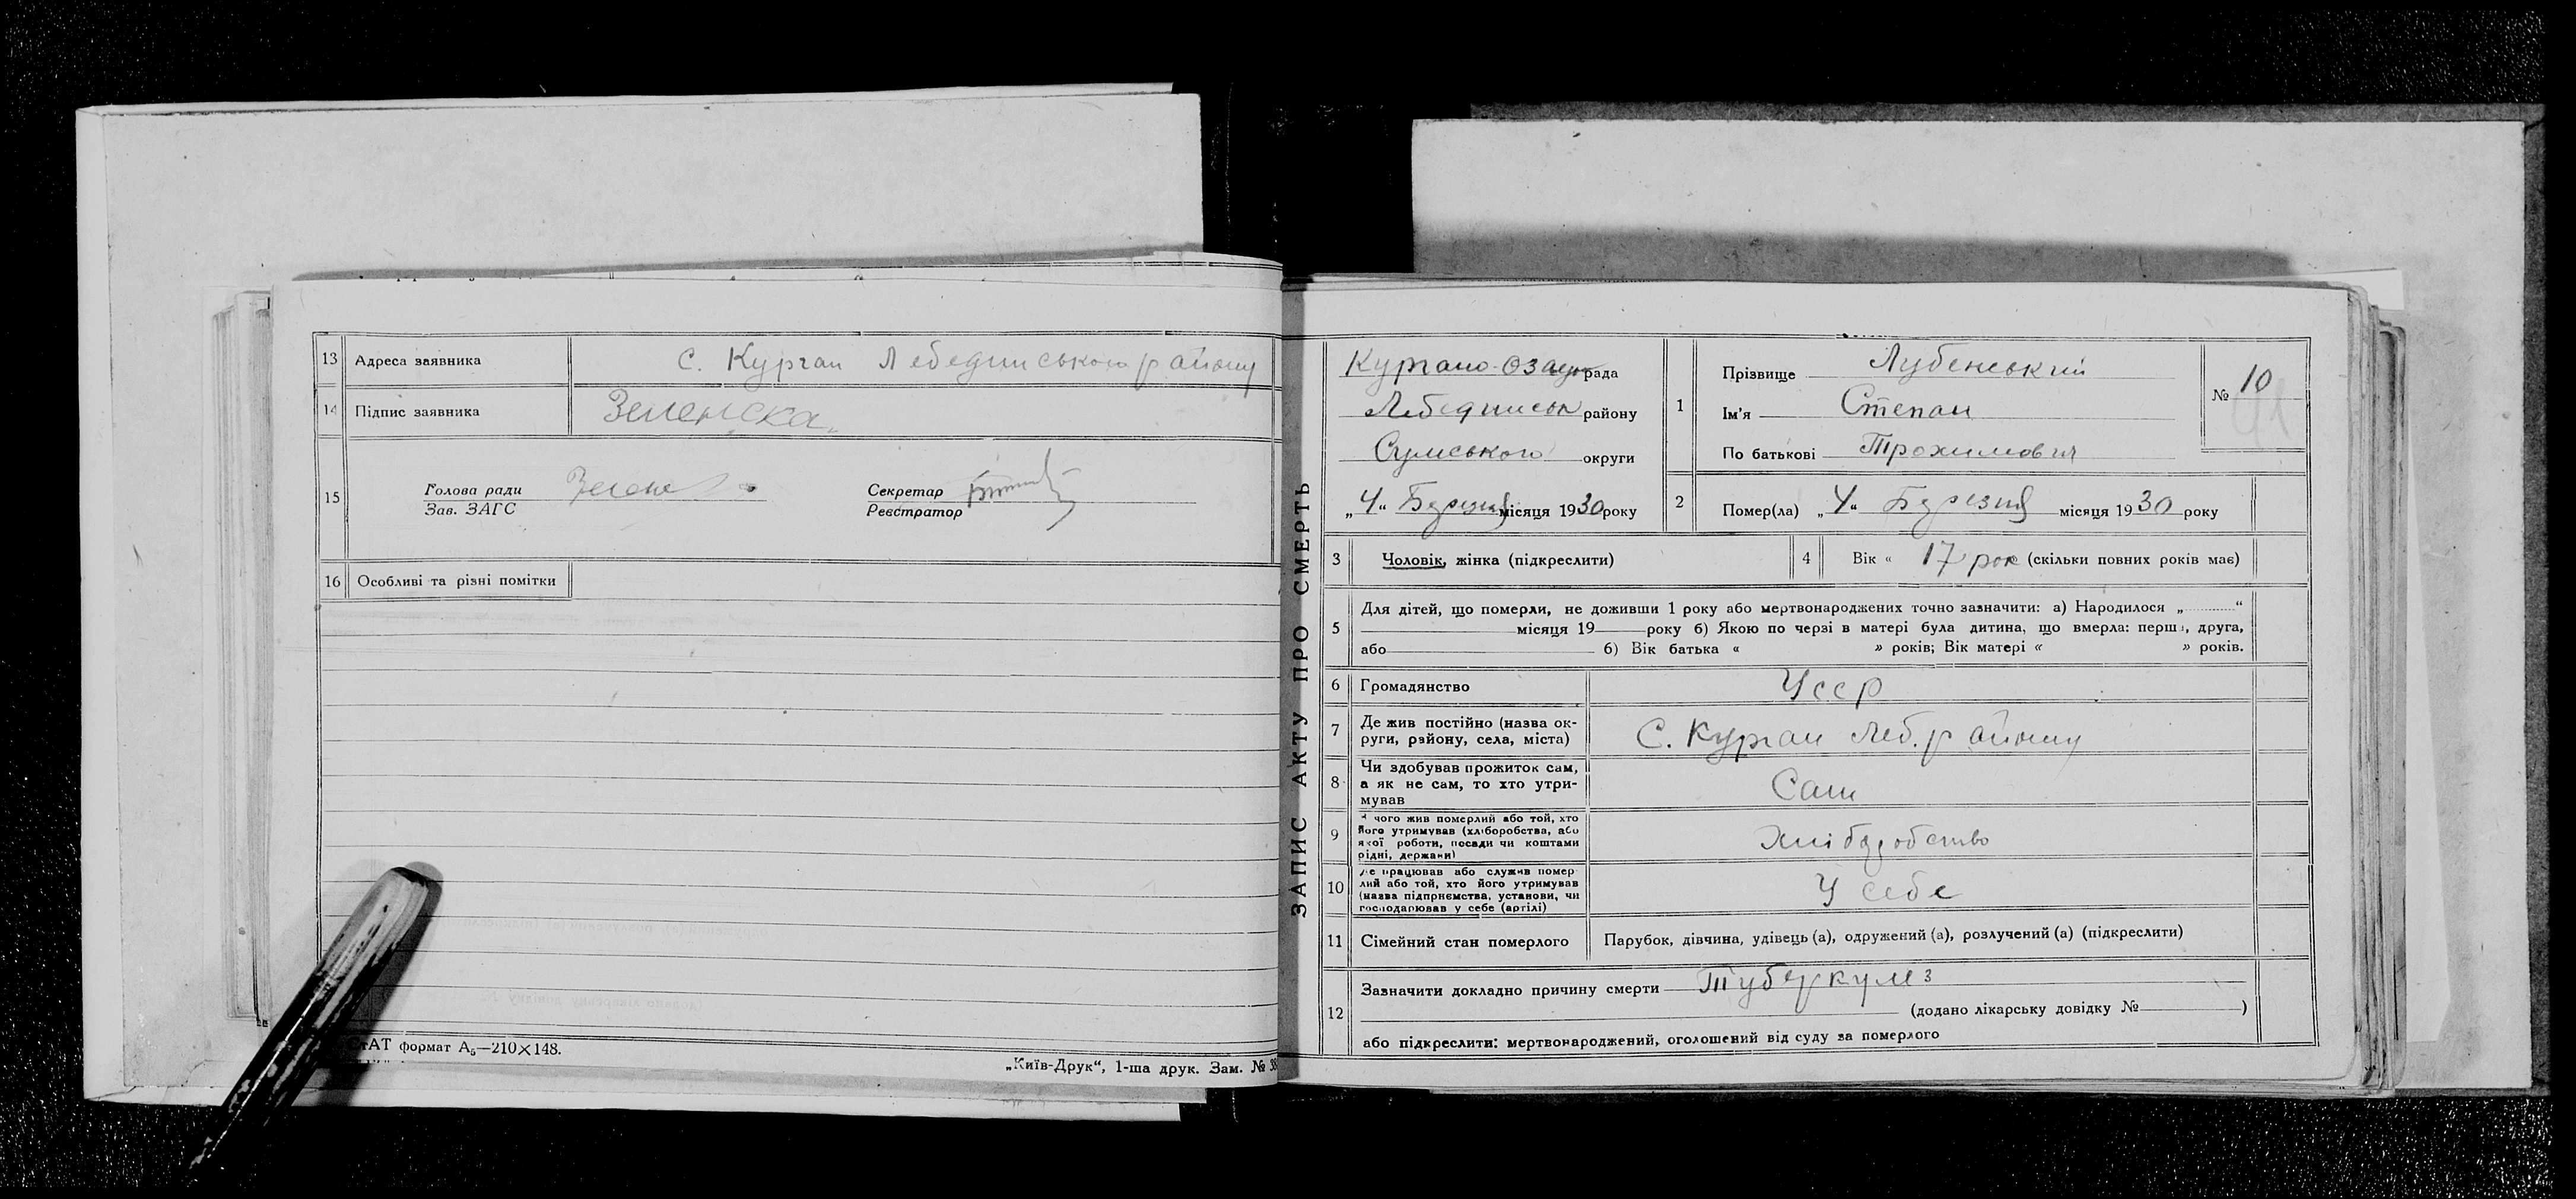 13 Адреса заявника с. Курган Лебединського району
14 Підпис заявника Зеленска
15 Голова ради
Зав. ЗАГС
Секретар
Реєстратор
16 Особливі та різні помітки
формат А₅—210×148.
„Київ-Друк“, 1-ша друк. Зам. №
ЗАПИС АКТУ ПРО СМЕРТЬ
Кургано-Озац рада
Лебединськ району
Сумського округи
„4“ Березня місяця 1930 року
1 Прізвище Лубенський
Ім'я Степан
По батькові Трохимович
№ 10
2 Помер(ла) „4“ Березня місяця 1930 року
3 Чоловік, жінка (підкреслити)
4 Вік « 17 рок (скільки повних років має)
5 Для дітей, що померли, не доживши 1 року або мертвонароджених точно зазначити: а) Народилося „ “
місяця 19 року б) Якою по черзі в матері була дитина, що вмерла: перша, друга,
або б) Вік батька « » років; Вік матері « » років.
6 Громадянство Усср
7 Де жив постійно (назва ок-
руги, району, села, міста) С. Курган Леб. району
8 Чи здобував прожиток сам,
а як не сам, то хто утри-
мував Сам
9 чого жив померлий або той, хто
його утримував (хліборобства, або
якої роботи, посади чи коштами
рідні, держави) Хліборобство
10 Де працював або служив помер
лий або той, хто його утримував
(назва підприємства, установи, чи
господарював у себе (артілі) У себе
11 Сімейний стан померлого Парубок, дівчина, удівець (а), одружений (а), розлучений (а) (підкреслити)
12 Зазначити докладно причину смерти Туберкулез
(додано лікарську довідку № )
або підкреслити: мертвонароджений, оголошений від суду за померлого